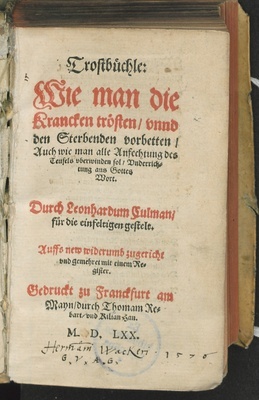 Trostbüchle:
Wie man die
Krancken trösten/ vnnd
den Sterbenden vorbetten/
Auch wie man alle Anfechtung des
Teufels vberwinden sol/ Vnderrich-
tung auß Gottes
Wort.
Durch Leonhardum Culman/
für die einfeltigen gestelt.
Auffs new widerumb zugericht
vnd gemehret mit einem Re-
gister.
Gedruckt zu Franckfurt am
Mayn/ durch Thomam Re-
bart/ vnd Kilian Han.
M. D. LXX.
Herman Wacker 1570